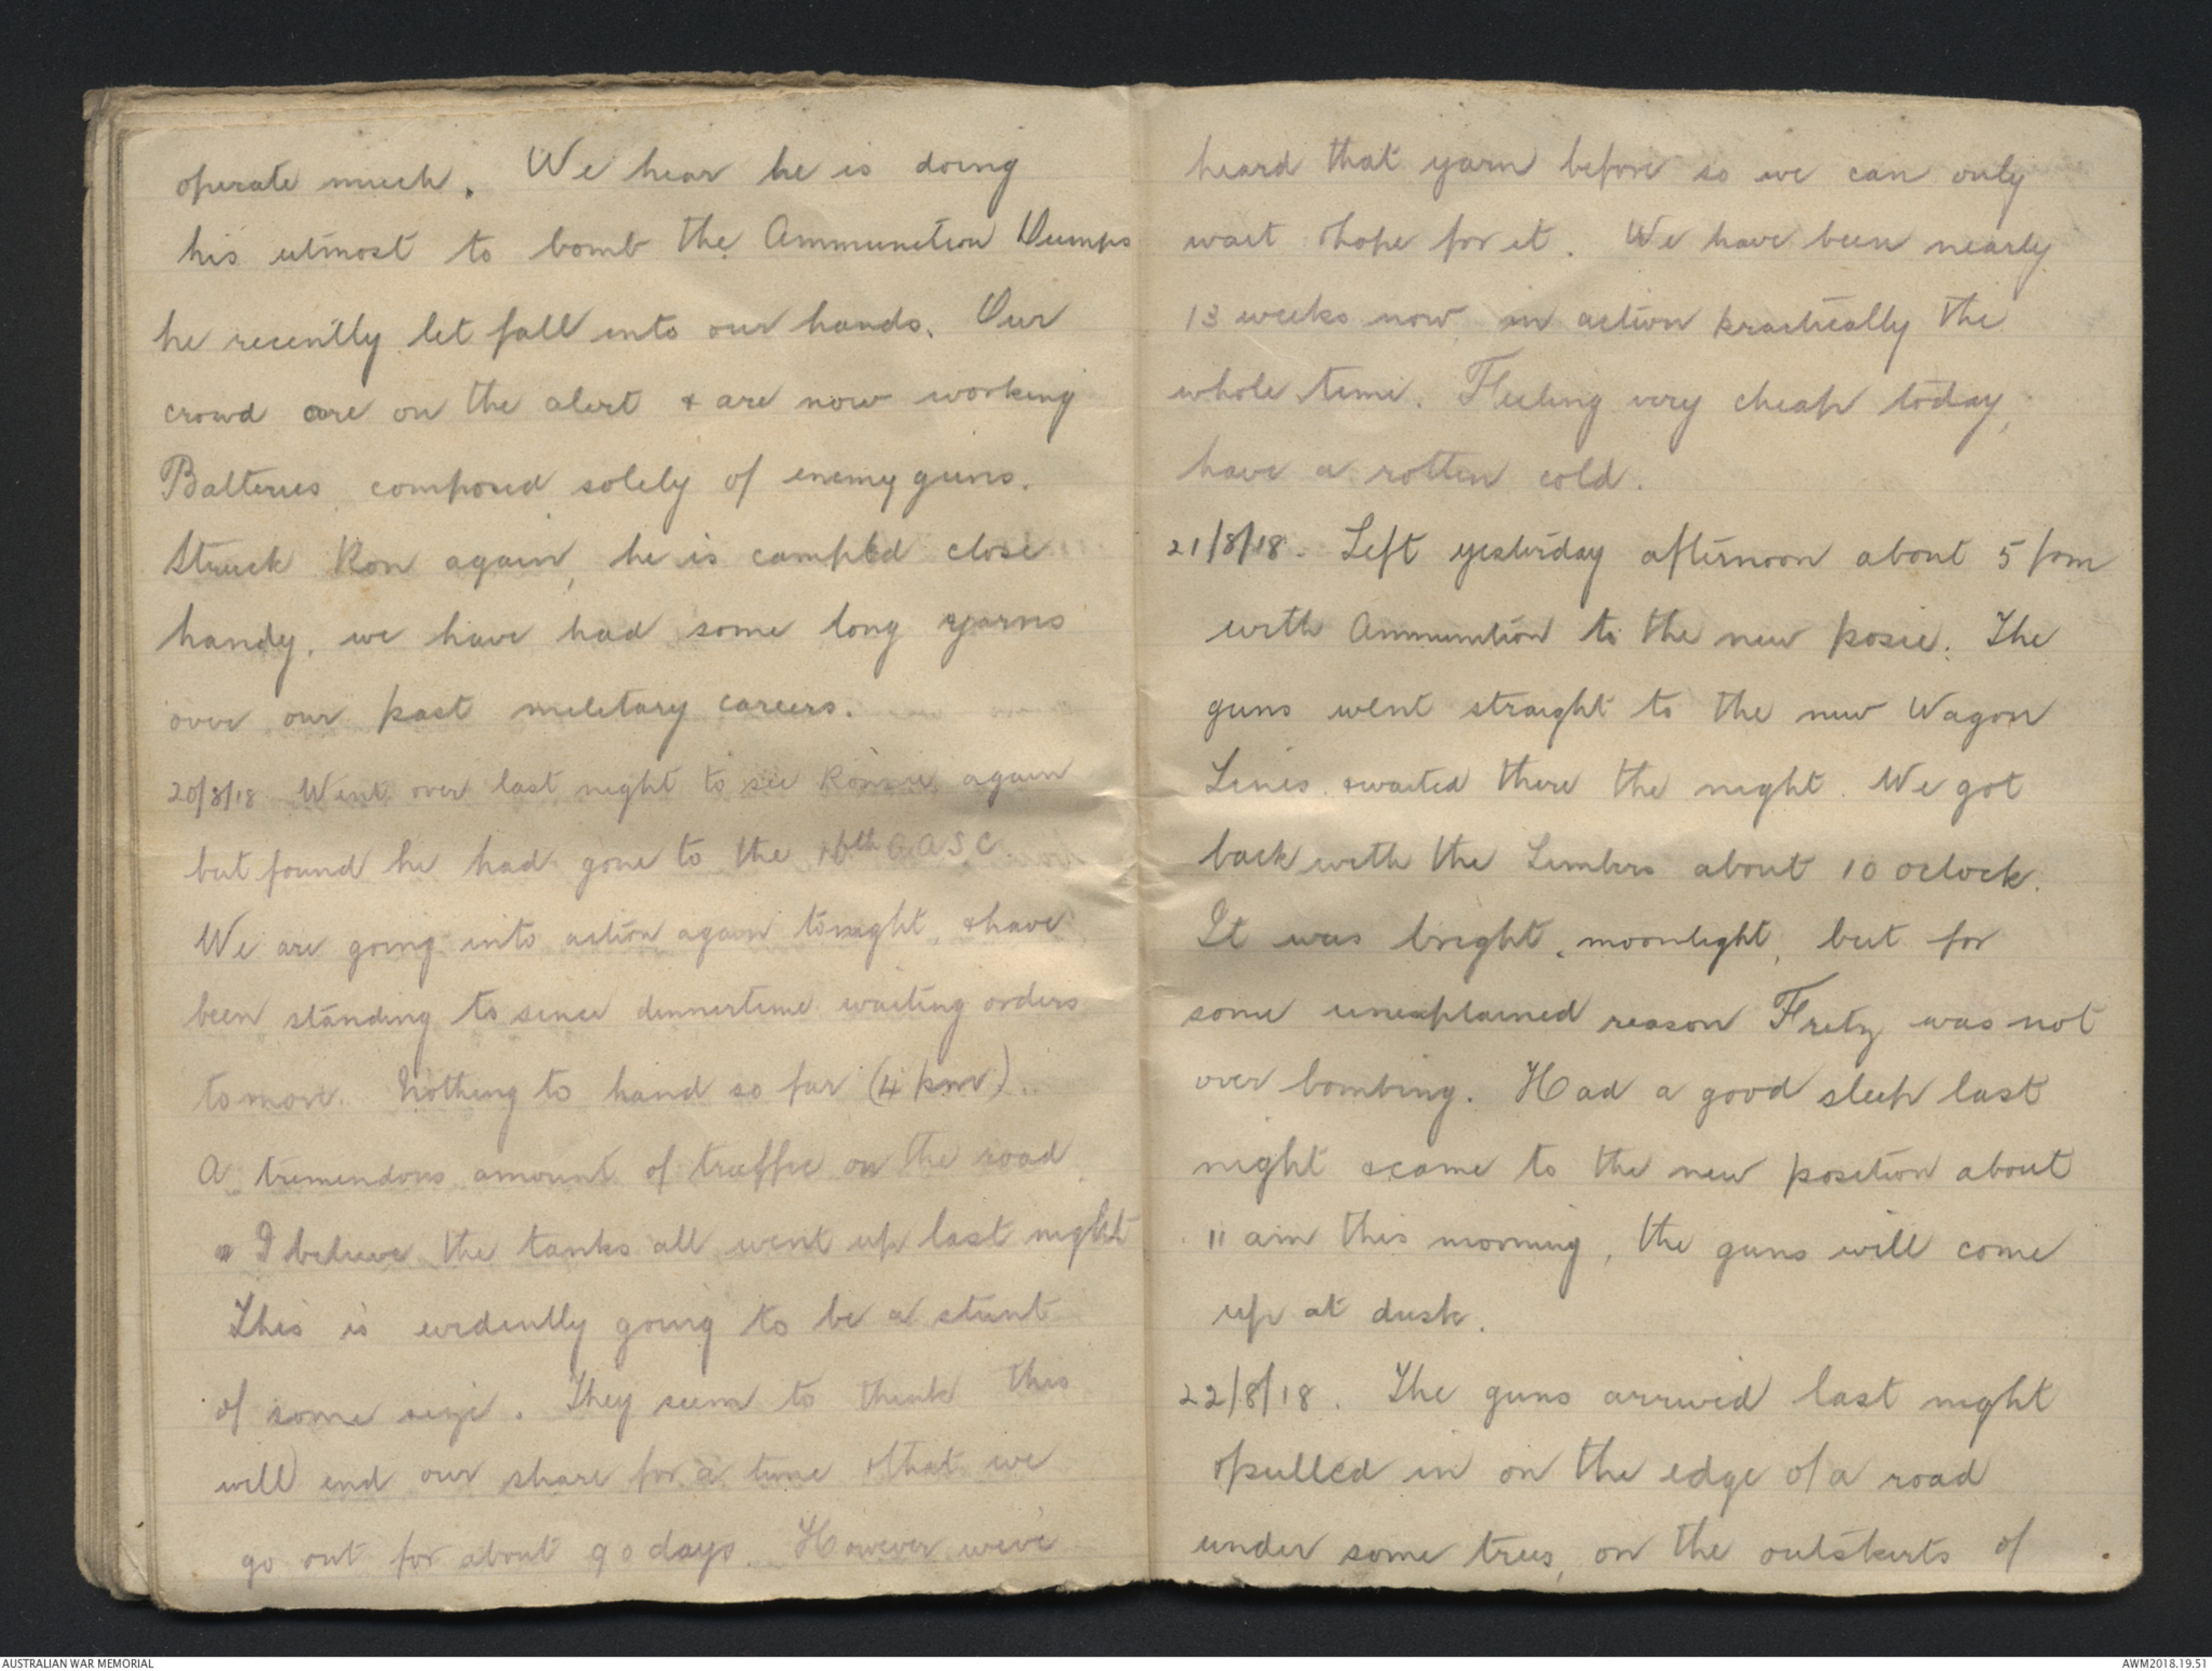 operate much. We hear he is doing
his utmost to bomb the Ammunition Dumps
he recently let fall into our hands. Our
crowd are on the alert & are now working
Batteries composed solely of enemy guns.
Struck Ron again, he is camped close
handy, we have had some long yarns
over our past military careers.
20/8/18 Went over last night to see Ronnie again
but found he had gone to the 16th AASC.
We are going into action again tonight, & have
been standing to since dinnertime waiting orders
to move. Nothing to hand so far (4 pm).
A tremendous amount of traffic on the road
I believe the tanks all went up last night
This is evidently going to be a stunt
of some size. They seem to think this
will end our share for a time & that we
go out for about 90 days. However we've
heard that yarn before so we can only
wait & hope for it. We have been nearly
13 weeks now in action practically the
whole time. Feeling very cheap today,
have a rotten cold.
21/8/18. Left yesterday afternoon about 5 pm
with Ammunition to the new posie. The
guns went straight to the new Wagon
Lines & waited there the night. We got
back with the Limbers about 10 oclock.
It was bright moonlight, but for
some unexplained reason Fritz was not
over bombing. Had a good sleep last
night & came to the new position about
11 am this morning, the guns will come
up at dusk.
22/8/18. The guns arrived last night
& pulled in on the edge of a road
under some trees, on the outskirts of
AUSTRALIAN WAR MEMORIAL
AWM2018.19.51